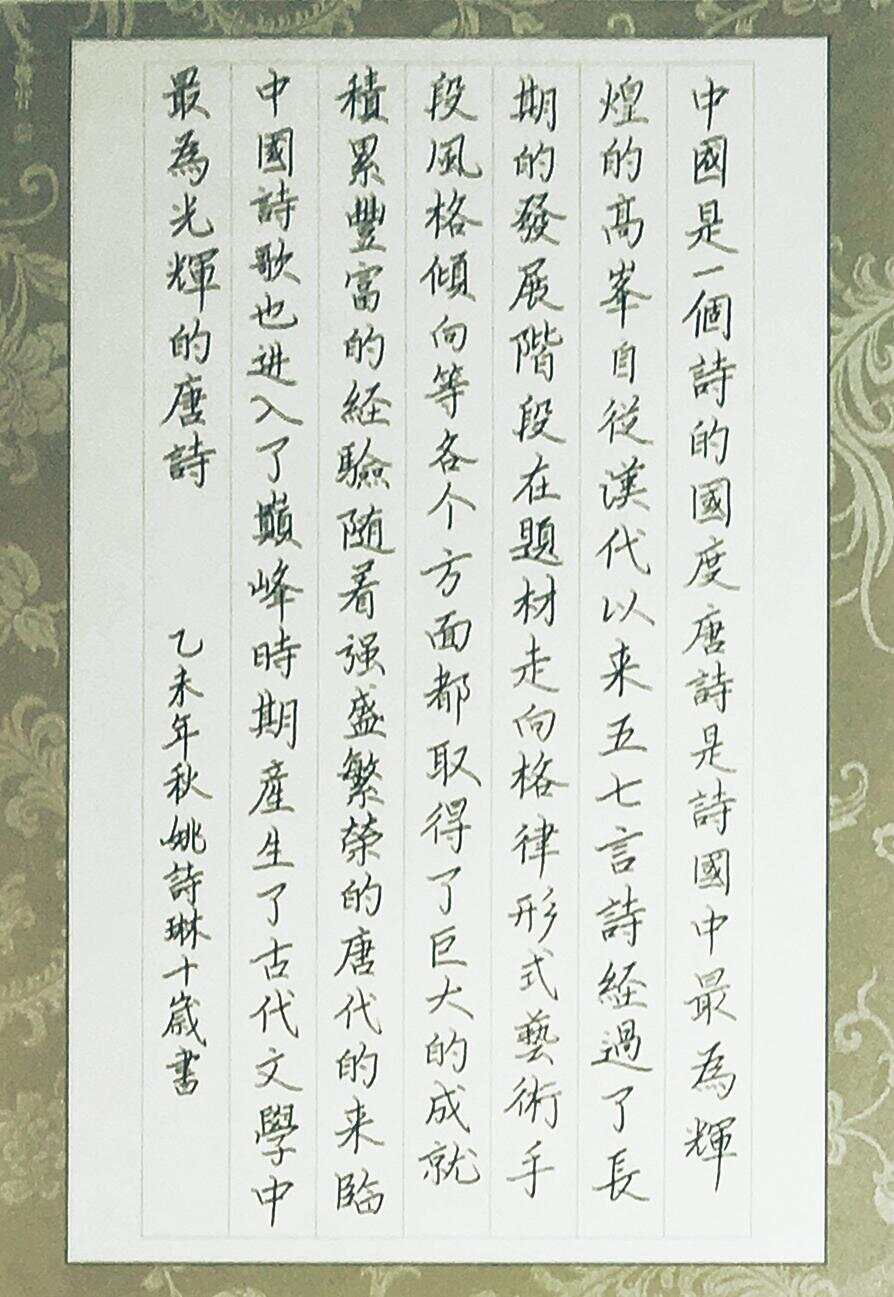 中國是一個詩的國度唐詩是詩國中最為輝
煌的高峯自從漢代以来五七言詩經過了長
期的發展階段在題材走向格律形式藝術手
段風格傾向等各个方面都取得了巨大的成就
積累豐富的経驗随着强盛繁榮的唐代的来臨
中國詩歌也进入了巔峰時期產生了古代文學中
最為光輝的唐詩
乙未年秋姚詩琳十歲書